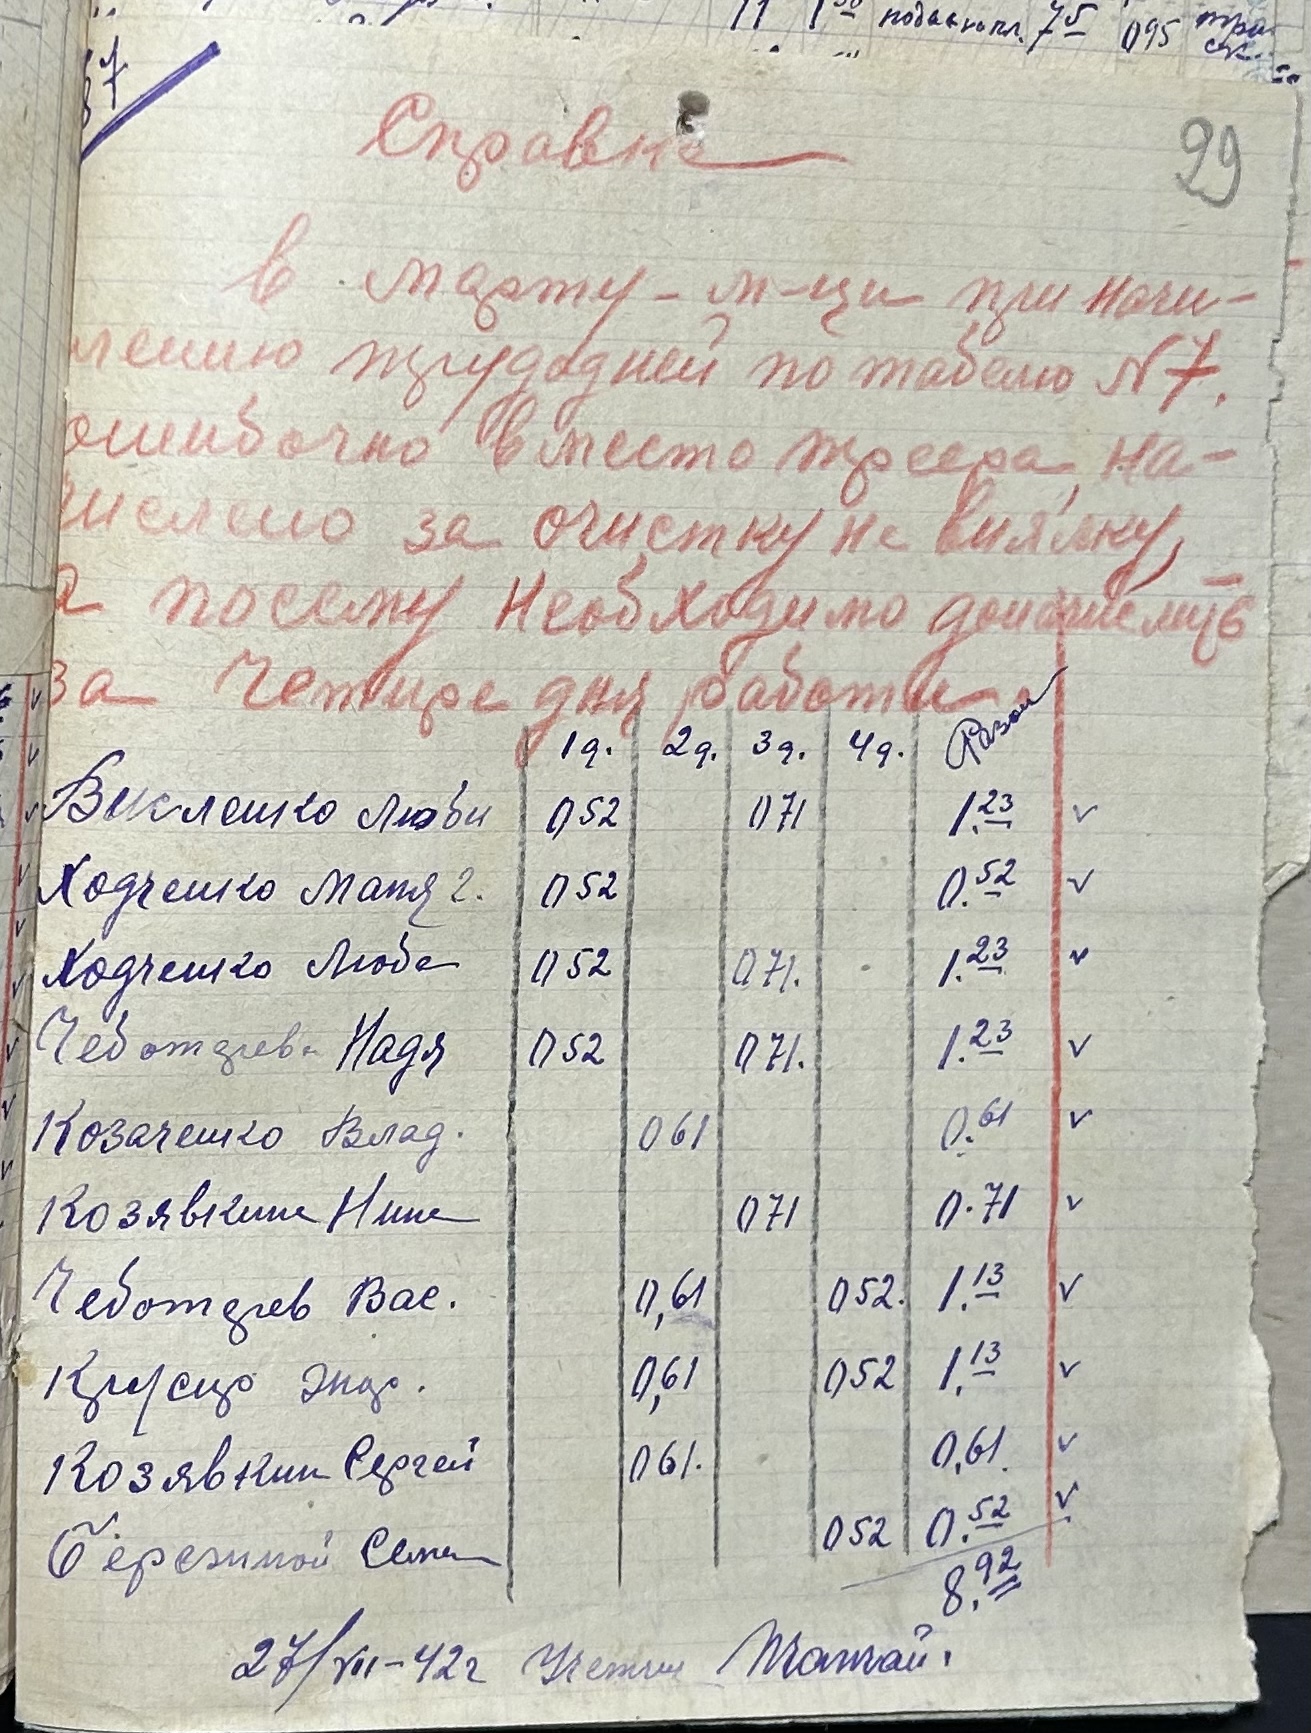 11 1 50 75 095
99
Справка
в марту - м-ци при начи-
лению трудодней по табелю N7.
ошибочно вместо на-
числено за очистку на виялку,
а посему необходимо доначислить
за четире дня работи.
1д. 2д. 3д. 4д. Разом
Люби 052 071 1.23 v
Ходченко Маня г. 052 0.52 v
Ходченко Люба 052 071. 1.23 v
Чеботарева Надя 052 071. 1.23 v
Козаченко Влад. 061 0.61 v
Козявкина Нина 071 0.71 v
Чеботарев Вас. 0,61 052. 1.13 v
0,61 052 1.13 v
Козявкин Сергей 061. 0,61. v
Семен 052 0.52 v
8.92
27/VII-42г